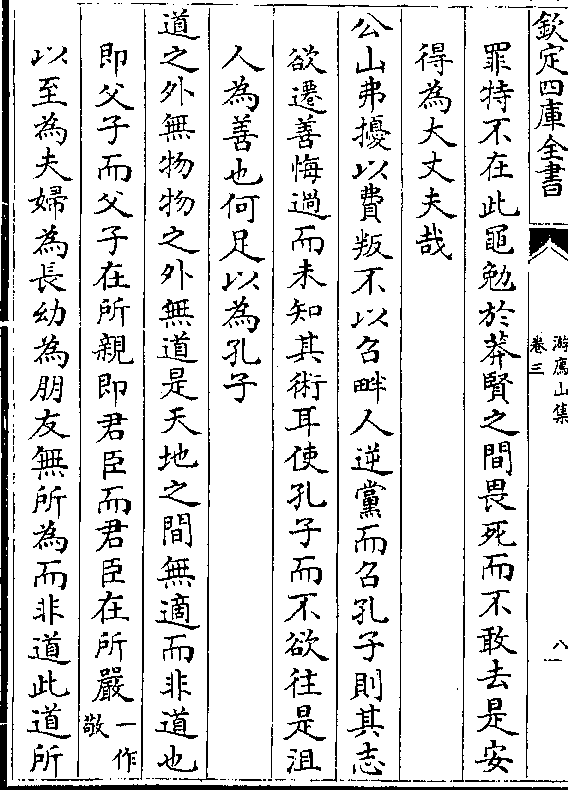 欽定四庫全書
游廌山集
卷三
八
罪特不在此黽勉於莽賢之間畏死而不敢去是安
得為大丈夫哉
公山弗擾以費叛不以召畔人逆黨而召孔子則其志
欲遷善悔過而未知其術耳使孔子而不欲往是沮
人為善也何足以為孔子
道之外無物物之外無道是天地之間無適而非道也
即父子而父子在所親即君臣而君臣在所嚴一作敬
以至為夫婦為長幼為朋友無所為而非道此道所